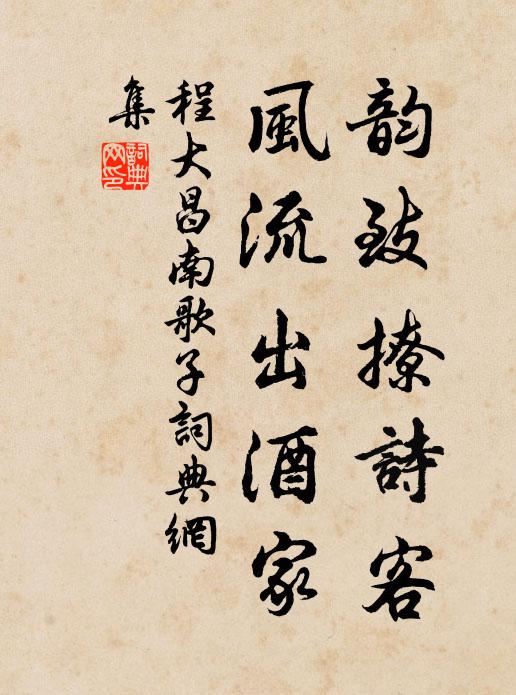 韵致撩詩客
風流出酒家
程大昌南歌子詞典網
集
詞典網印